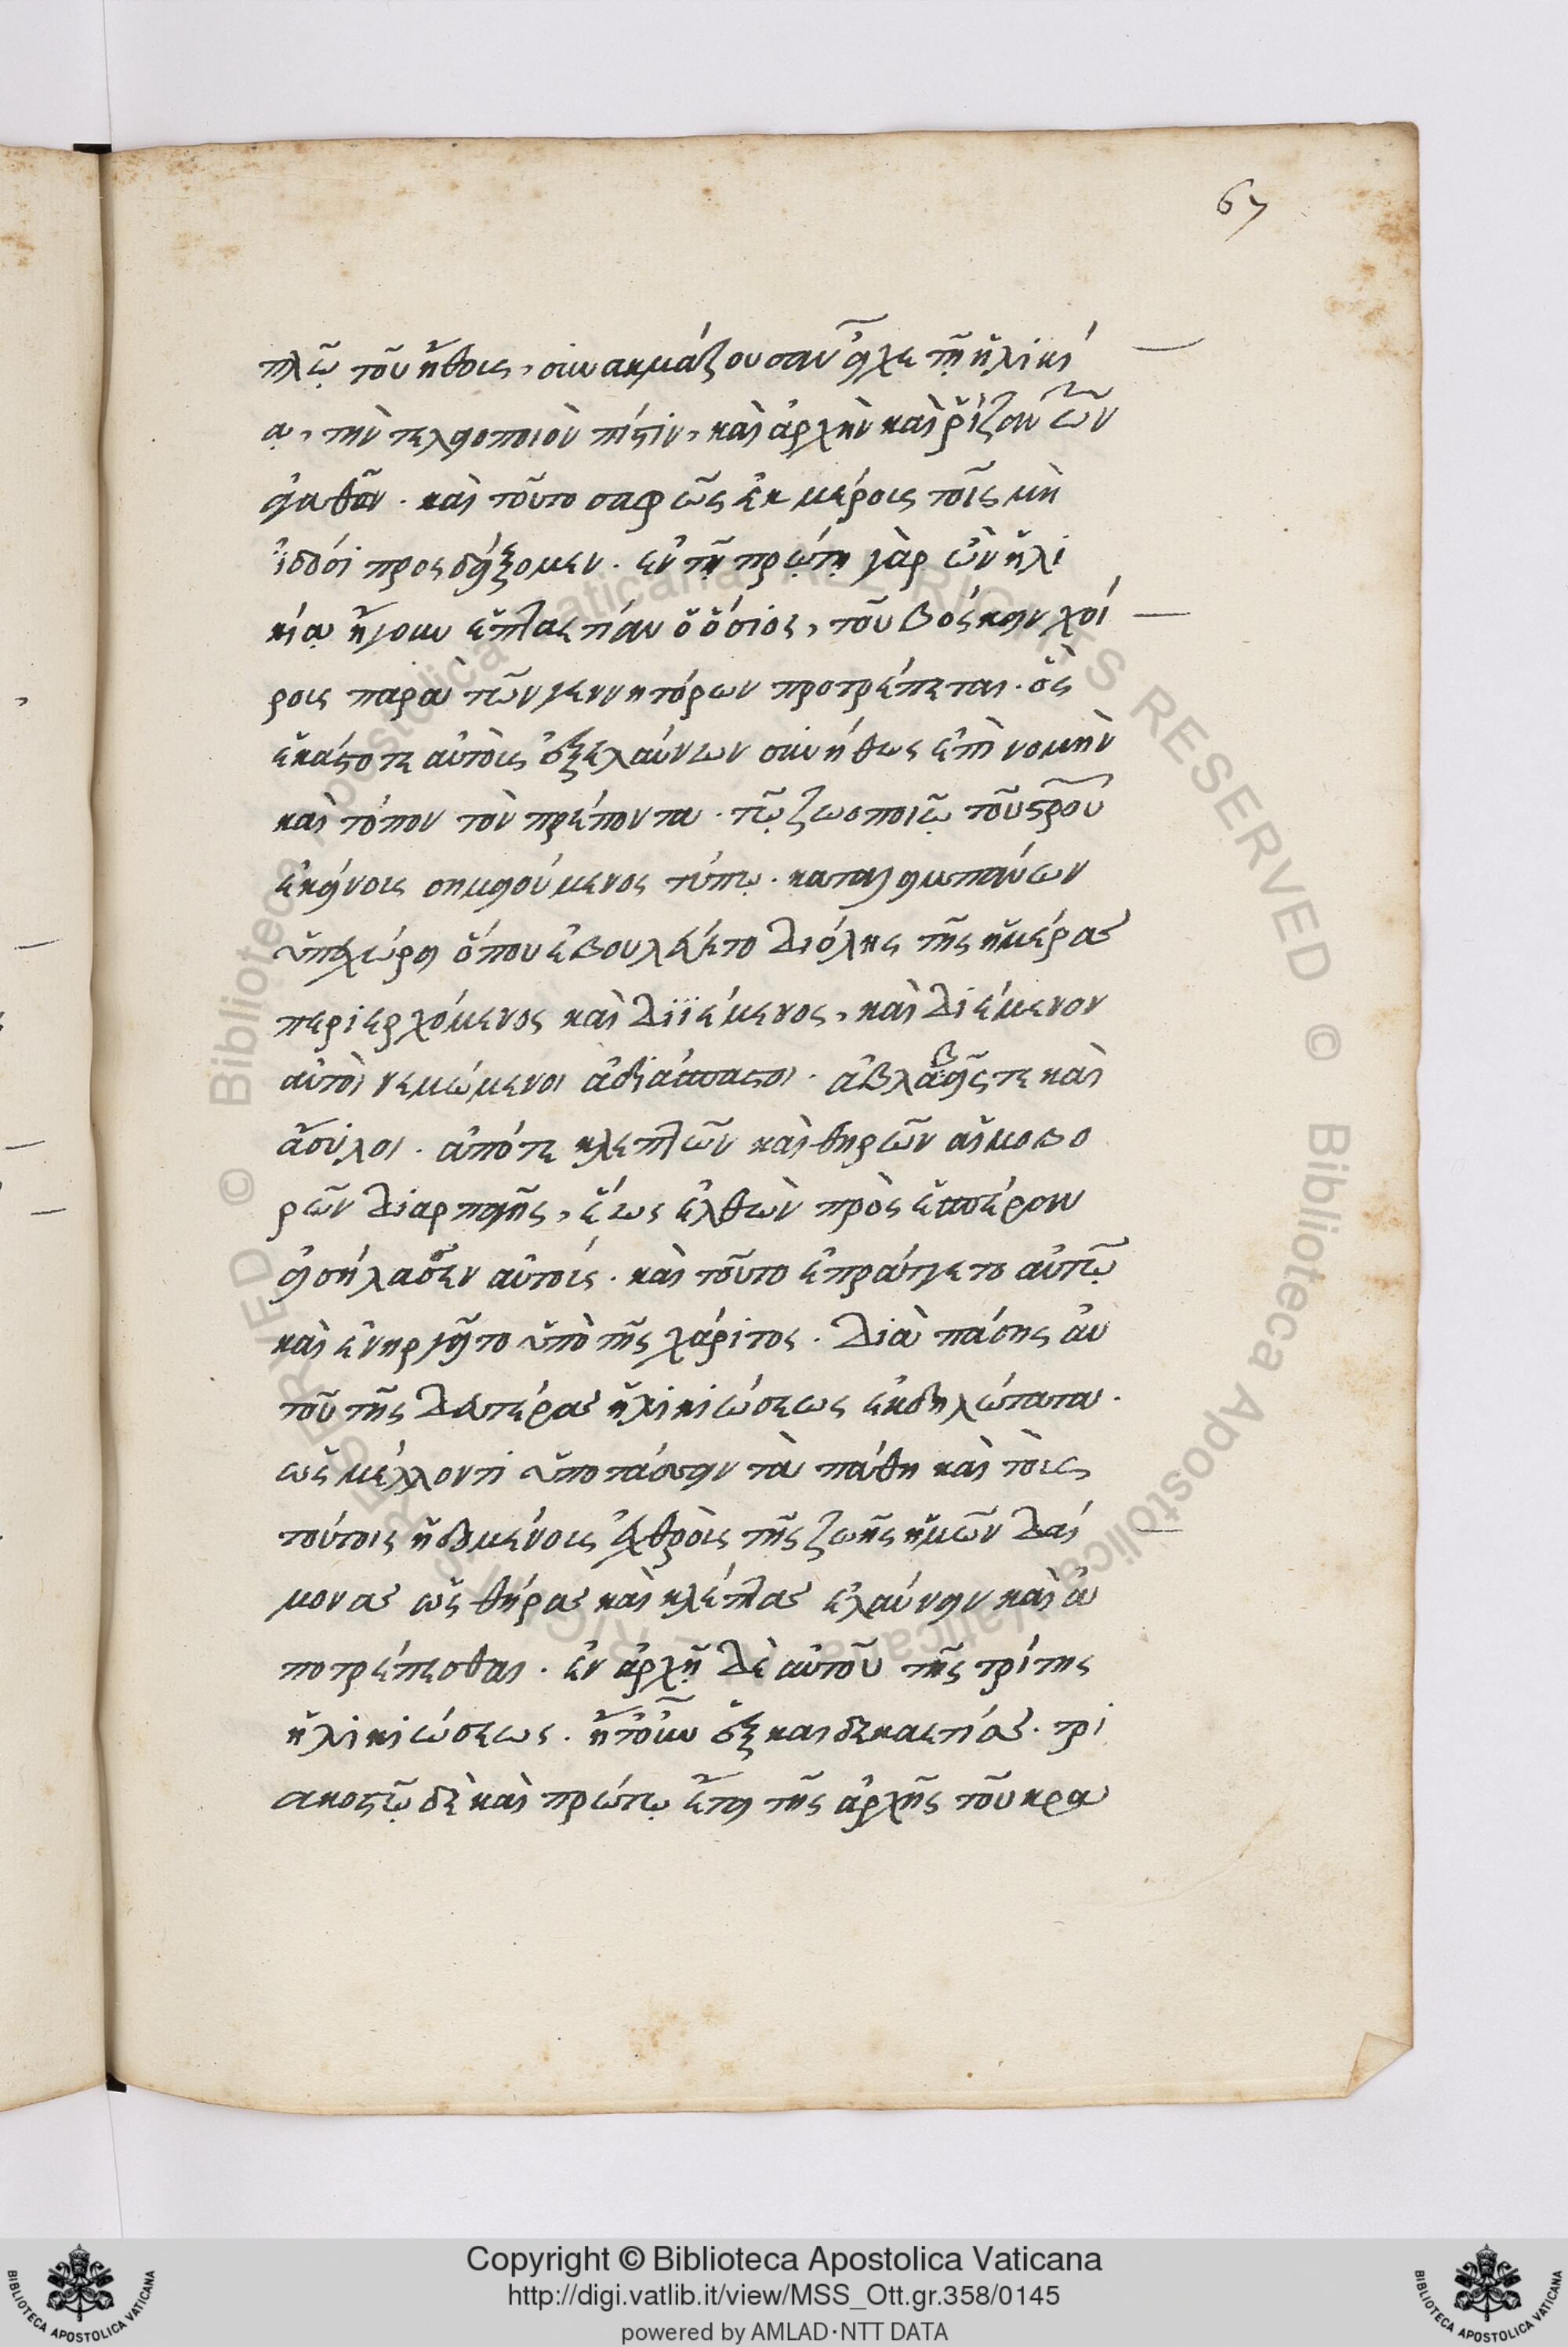 67
πλῷ τοῦ ἤθους, συνακμάζουσαν εἶχε τῇ ἡλικί
ᾳ, τὴν τελειοποιὸν πίστιν, καὶ ἀρχὴν καὶ ῥίζαν τῶν
ἀγαθῶν. καὶ τοῦτο σαφῶς ἐκ μέρους τοῖς μὴ
εἰδόσι προσδείξομεν. ἐν τῇ πρώτῃ γὰρ ὢν ἡλι
κίᾳ ἤγουν ἑπταετίαν ὁ ὅσιος, τοῦ βόσκειν χοί
ρους παρὰ τῶν γεννητόρων προτρέπεται. ὃς
ἑκάστοτε αὐτοὺς ἐξελαύνων συνήθως ἐπὶ νομὴν
καὶ τόπον τὸν πρέποντα. τῷ ζωοποιῷ τοῦ σρου
ἐκείνους σημειούμενος τύπῳ. καταλιμπάνων
ὑπεχώρει ὅπου ἐβουλεύετο διόλης τῆς ἡμέρας
περιερχόμενος καὶ διϊέμενος, καὶ διέμενον
αὐτοὶ νεμώμενοι ἀδιάσπαστοι. ἀβλαβεῖς τε καὶ
ἄσυλοι. ἀπό τε κλεπτῶν καὶ θηρῶν αἱμοβό
ρων διαρπαγῆς, ἕως ἐλθὼν πρὸς ἑσπέραν
εἰσήλασεν αὐτούς. καὶ τοῦτο ἐπράττετο αὐτῷ
καὶ ἐνηργεῖτο ὑπὸ τῆς χάριτος. διὰ πάσης αὐ
τοῦ τῆς δευτέρας ἡλικιώσεως ἐκδηλώτατα.
ὡς μέλλοντι ὑποτάσσειν τὰ πάθη καὶ τοὺς
τούτοις ἡδομένους ἐχθροὺς τῆς ζωῆς ἡμῶν δαί
μονας ὡς θῆρας καὶ κλέπτας ἐλαύνειν καὶ ἀ
ποτρέπεσθαι. ἐν ἀρχῇ δὲ αὐτοῦ τῆς τρίτης
ἡλικιώσεως. ἤτουν ἑξκαιδεκαετίας. τρι
ακοστῷ δὲ καὶ πρώτῳ ἔτει τῆς ἀρχῆς τοῦ κρα
Copyright © Biblioteca Apostolica Vaticana
http://digi.vatlib.it/view/MSS_Ott.gr.358/0145
powered by AMLAD·NTT DATA